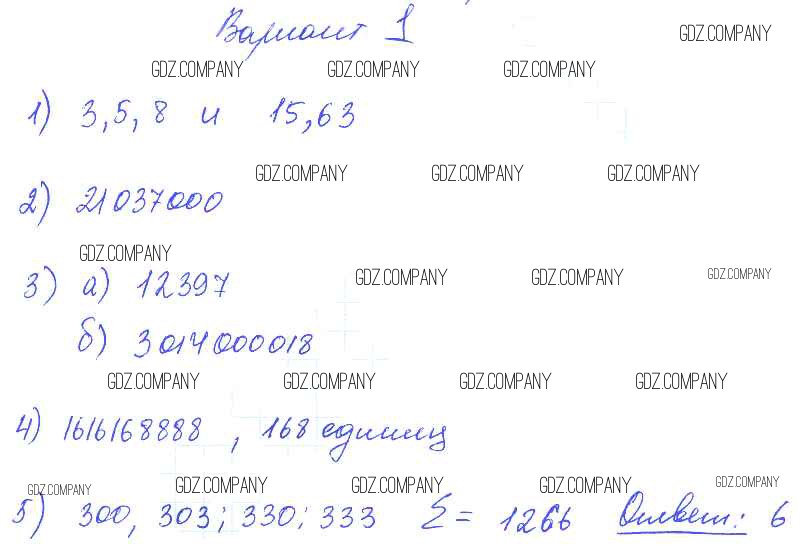 Вариант 1
GDZ.COMPANY
GDZ.COMPANY GDZ.COMPANY GDZ.COMPANY
1) 3, 5, 8 и 15, 63
GDZ.COMPANY GDZ.COMPANY GDZ.COMPANY
2) 21037000
GDZ.COMPANY
GDZ.COMPANY GDZ.COMPANY GDZ.COMPANY
3) а) 12397
б) 3014000018
GDZ.COMPANY GDZ.COMPANY GDZ.COMPANY GDZ.COMPANY
4) 1616168888 , 168 единиц
GDZ.COMPANY GDZ.COMPANY GDZ.COMPANY GDZ.COMPANY GDZ.COMPANY
5) 300, 303; 330; 333 Σ = 1266 Ответ: 6